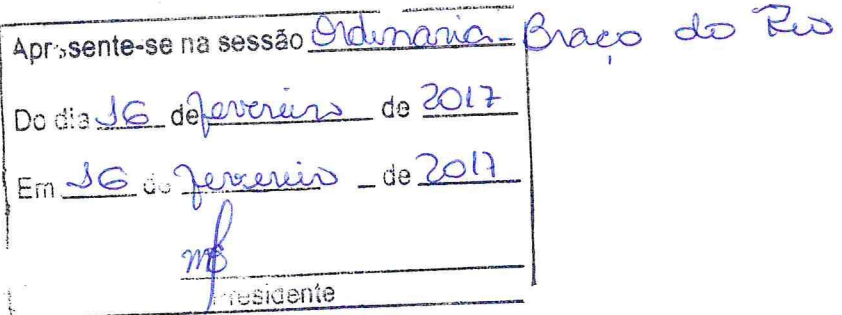 Apresente-se na sessão Ordinaria - Braço do Rio
Do dia 16 de fevereiro de 2017
Em 16 de fevereiro de 2017
Presidente